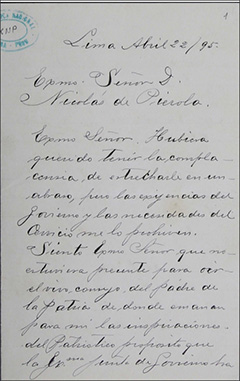 1
Lima Abril 22/95.
Exmo. Señor D.
Nicolas de Pierola.
Exmo Señor. Hubiera
querido tener la compla-
cencia, de estrecharle en un
abrazo, pero las exigencias del
Gobierno y las necesidades del
servicio me lo prohiven.
Siento Exmo Señor que no
estuviera presente para oir
del Padre de
la Patria de donde emanan
para mi las inspiraciones
del Patriotico proposito que
la Junta de Gobierno ha